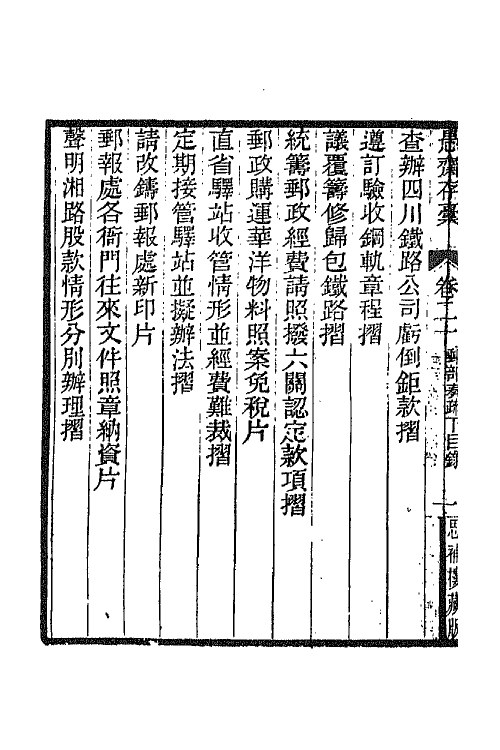 愚齋存藁　卷二十　郵部奏疏下目錄　一　思補樓藏版
查辦四川鐵路公司虧倒鉅款摺
遵訂驗收鋼軌章程摺
議覆籌修歸包鐵路摺
統籌郵政經費請照撥六關認定款項摺
郵政購運華洋物料照案免稅片
直省驛站收管情形並經費難裁摺
定期接管驛站並擬辦法摺
請改鑄郵報處新印片
郵報處各衙門往來文件照章納資片
聲明湘路股款情形分別辦理摺